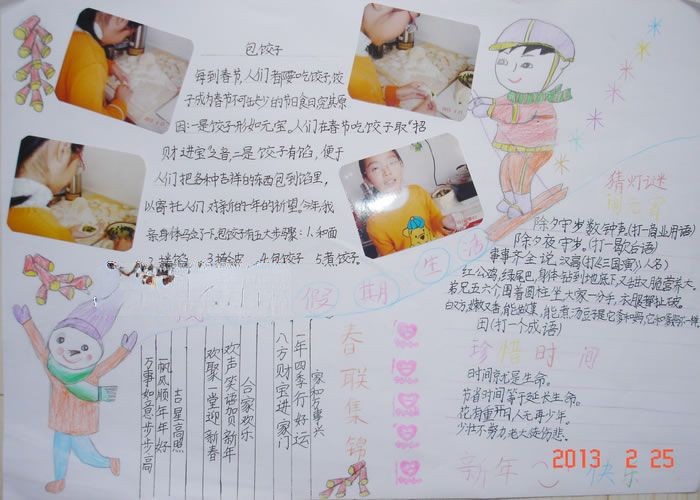 包饺子
每到春节,人们都要吃饺子,饺
子成为春节不可缺少的节日食品究其原
因:一是饺子形如元宝。人们在春节吃饺子取"招
财进宝"之音,二是饺子有馅,便于
人们把各种吉祥的东西包到馅里,
以寄托人们对新的一年的祈望。今年,我
亲身体
下,包饺子有五大步骤:1.和面
4.包饺子 5.煮饺子
假期生活
猜灯谜
除夕守岁数钟声(打一商业用语)
除夕夜守岁。(打一歌台语)
事事齐全说汉高(打《三国演》人名)
红公鸡,绿尾巴,身体钻到地底下,又甜又脆营养大。
弟兄五六个,围着圆柱坐,大家一分手,衣服都扯破。
白又方,嫩又香,能做菜,能煮汤豆子是它
田(打一个成语)
珍惜时间
时间就是生命。
节省时间等于延长生命。
花有重开日人无再少年。
少壮不努力老大徒伤悲。
新年快乐
2013 2 25
春联集锦
家和万事兴
一年四季行好运
八方财宝进家门
合家欢乐
欢声笑语贺新年
欢聚一堂迎新春
吉星高照
一帆风顺年年好
万事如意步步高